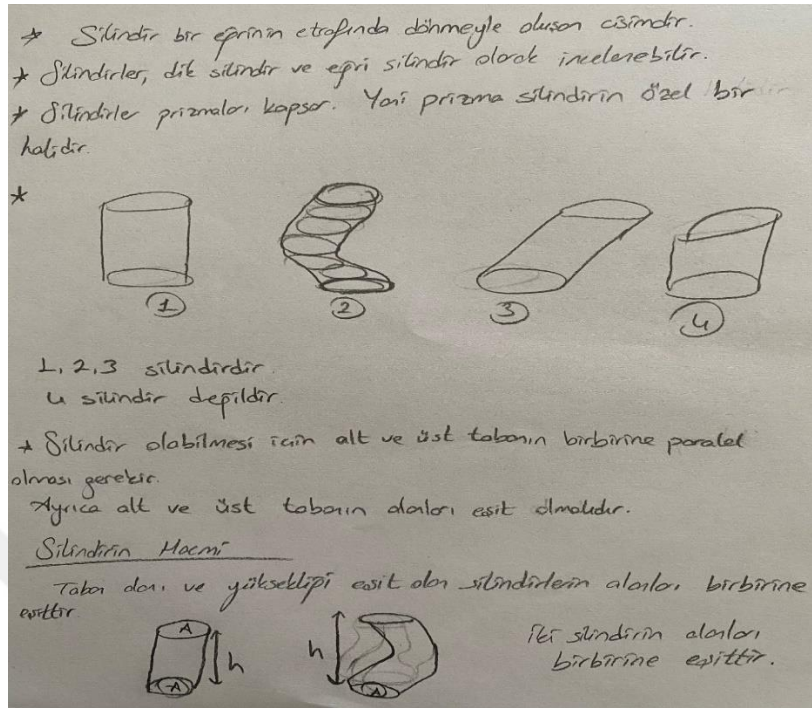 * Silindir bir eğrinin etrafında dönmeyle oluşan cisimdir.
* Silindirler, dik silindir ve eğri silindir olarak incelenebilir.
* Silindirle prizmaları kapsar. Yani prizma silindirin özel bir
halidir.
*
1
2
3
4
1, 2, 3 silindirdir.
4 silindir değildir.
* Silindir olabilmesi için alt ve üst tabanın birbirine paralel
olması gerekir.
Ayrıca alt ve üst tabanın alanları eşit olmalıdır.
Silindirin Hacmi
Taban alanı ve yüksekliği eşit olan silindirlerin alanları birbirine
eşittir
A
h
A
h
A
iki silindirin alanları
birbirine eşittir.